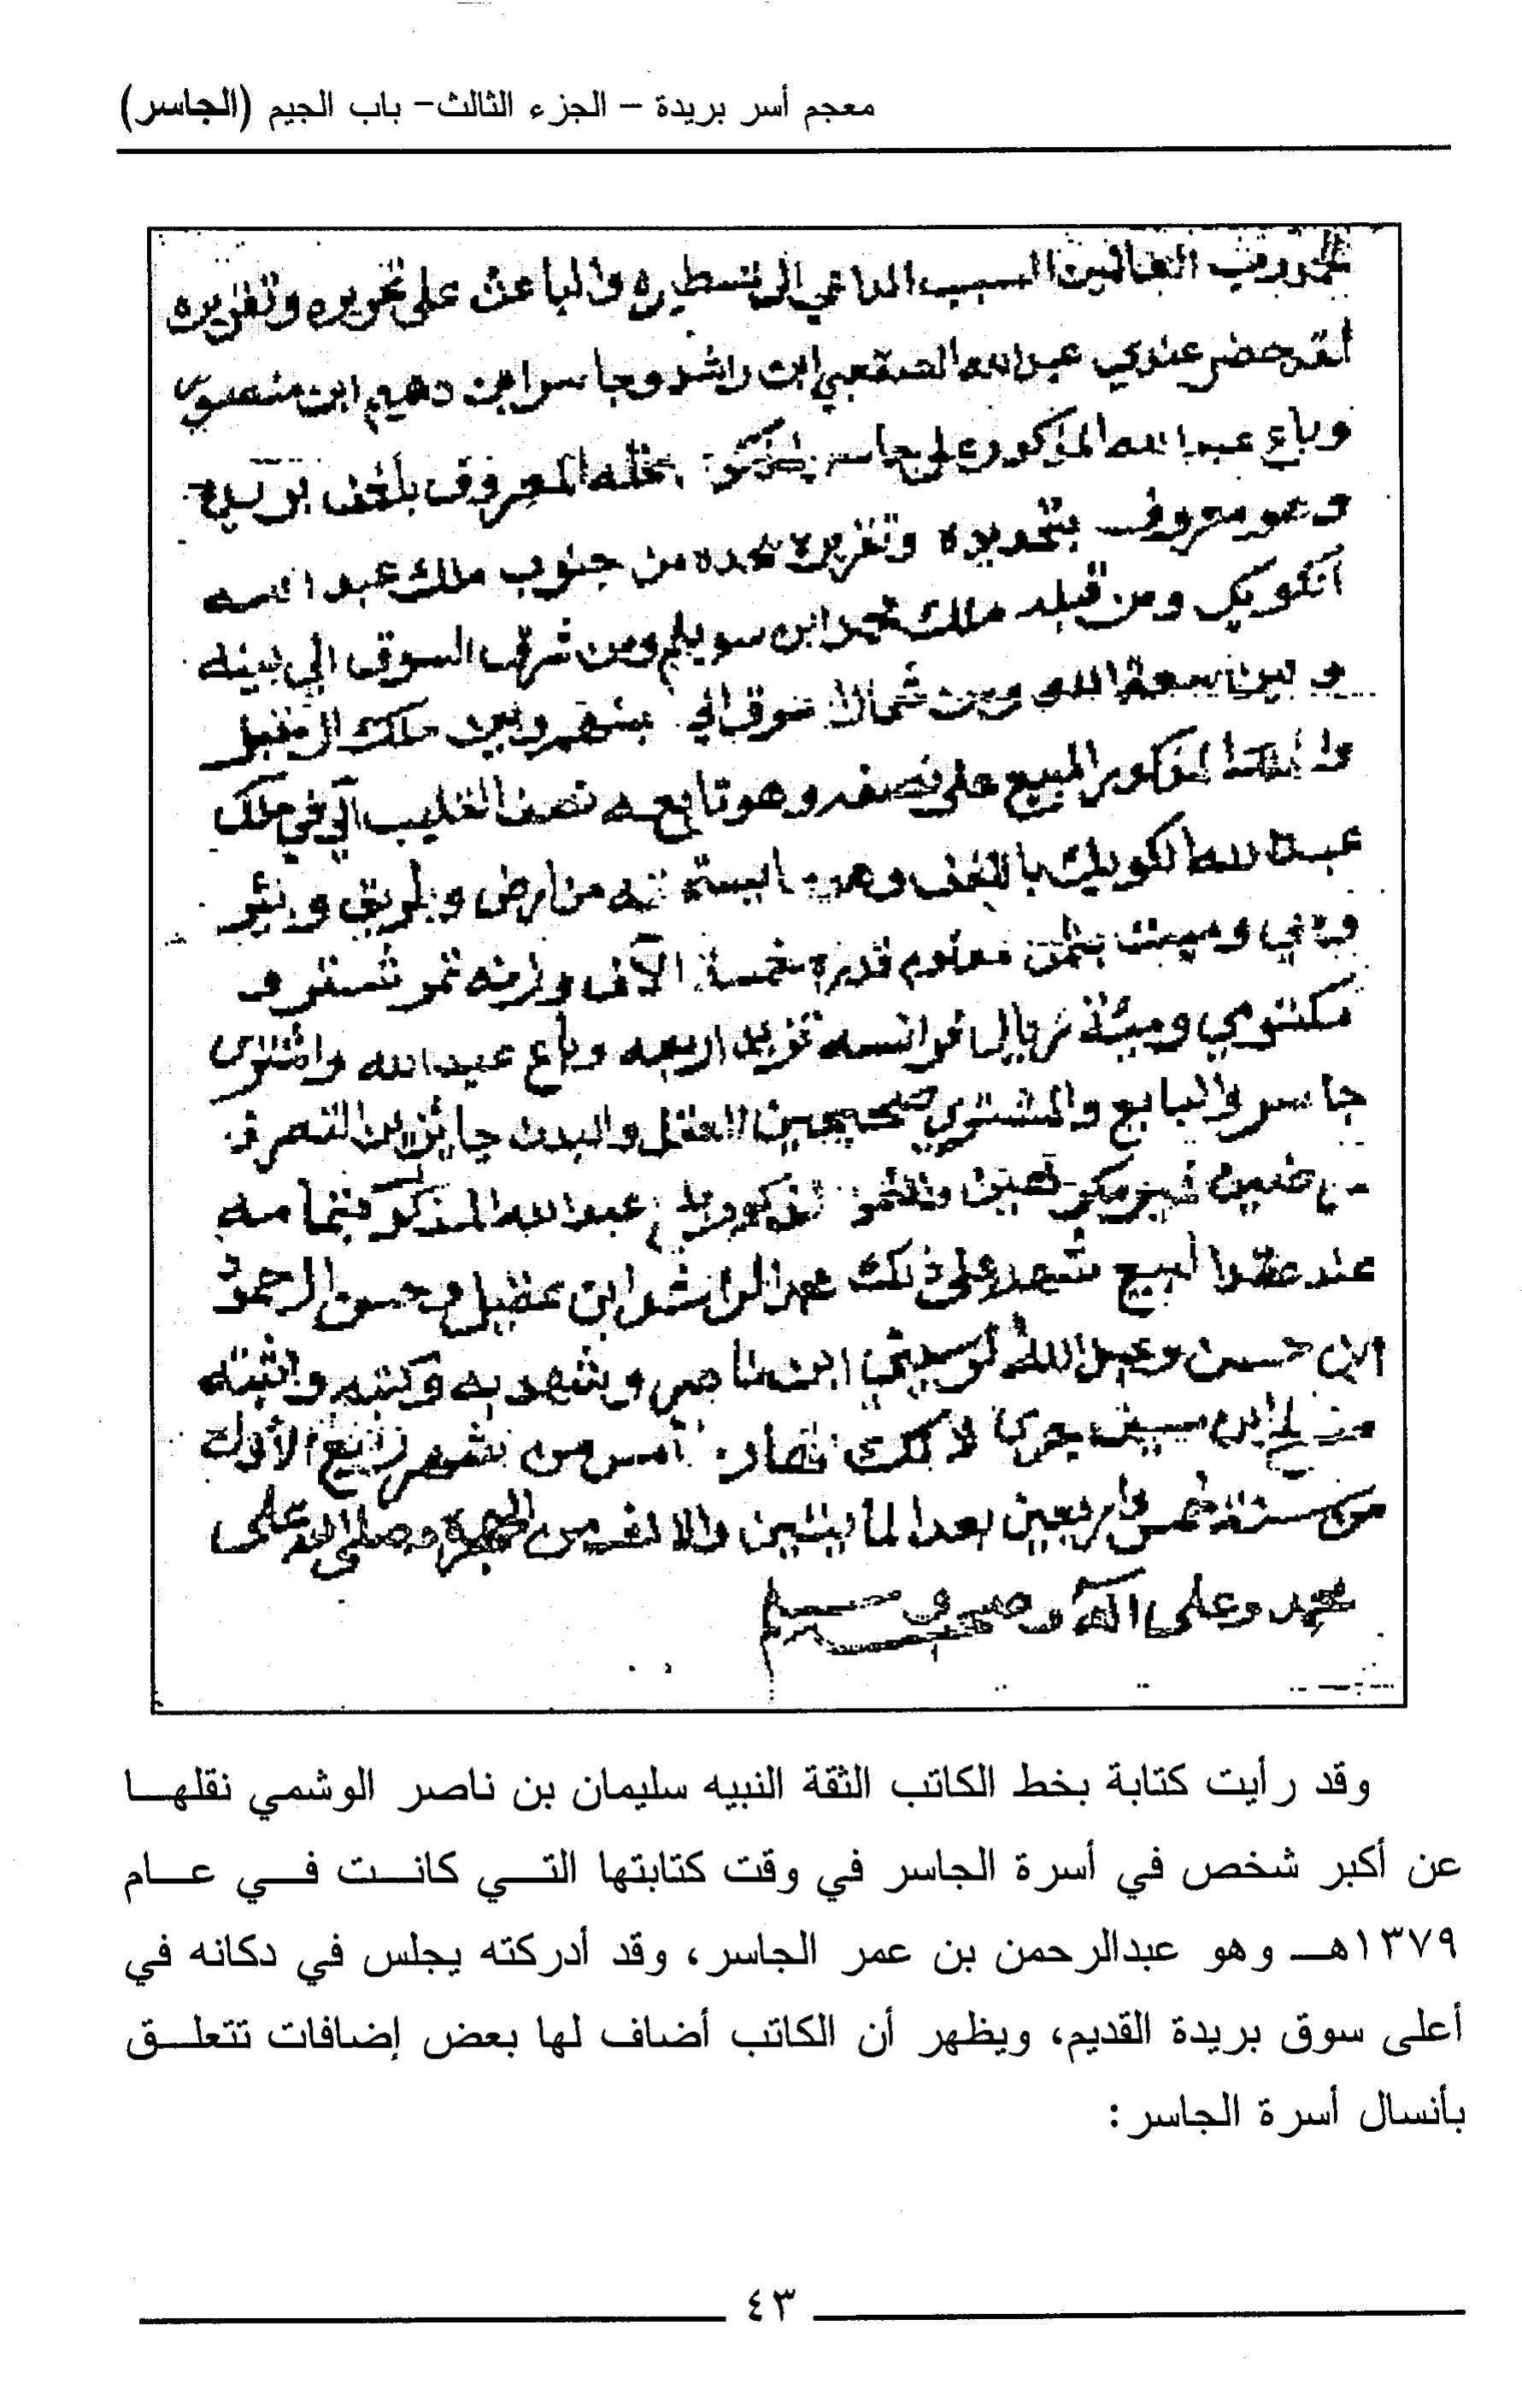 معجم أسر بريدة – الجزء الثالث– باب الجيم (الجاسر)
رب العالمين السبب الداعي الى تسطيره والباعث على تحريره وتقريره
لقد حضر عندي عبدالله الصقعبي ابن راشد وجاسر ابن دهيم ابن منصور
وباع عبدالله المذكور على جاسر نخله المعروف
وهو معروف بتحديده وتقريره يحده من جنوب ملك عبدالله
الكويك ومن قبله ملك محمد ابن سويلم ومن شرق السوق الي بينه
و بين ومن شمال سوق الي بينهم وبين ملك
المذكور المبيع على نصفه وهو تابعه نصف القليب الي في ملك
عبدالله الكويك من ارض وطريق وبئر
وحي وميت بثمن معلوم قدره خمسة الآف وزنه تمر شقر و
مكتومي ومية ريال فرانسه تزيد اربعه وباع عبدالله واشترى
جاسر والبايع والمشتري صحيحين العقل والبدن جايزين التصرف
غير مكرهين عبدالله المذكور
عند عقد البيع شهد على ذلك ابن وحسن الحمود
ابن حسين وعبدالله ابن ناصر وشهد به وكتبه واثبته
ابن سيف جرى ذلك من شهر ربيع الأول
من سنة خمس واربعين بعد المايتين والالف من الهجرة وصلى الله على
محمد وعلى اله وصحبه وسلم
وقد رأيت كتابة بخط الكاتب الثقة النبيه سليمان بن ناصر الوشمي نقلهــا
عن أكبر شخص في أسرة الجاسر في وقت كتابتها التــي كانــت فــي عــام
١٣٧٩هــ وهو عبدالرحمن بن عمر الجاسر، وقد أدركته يجلس في دكانه في
أعلى سوق بريدة القديم، ويظهر أن الكاتب أضاف لها بعض إضافات تتعلــق
بأنسال أسرة الجاسر :
٤٣